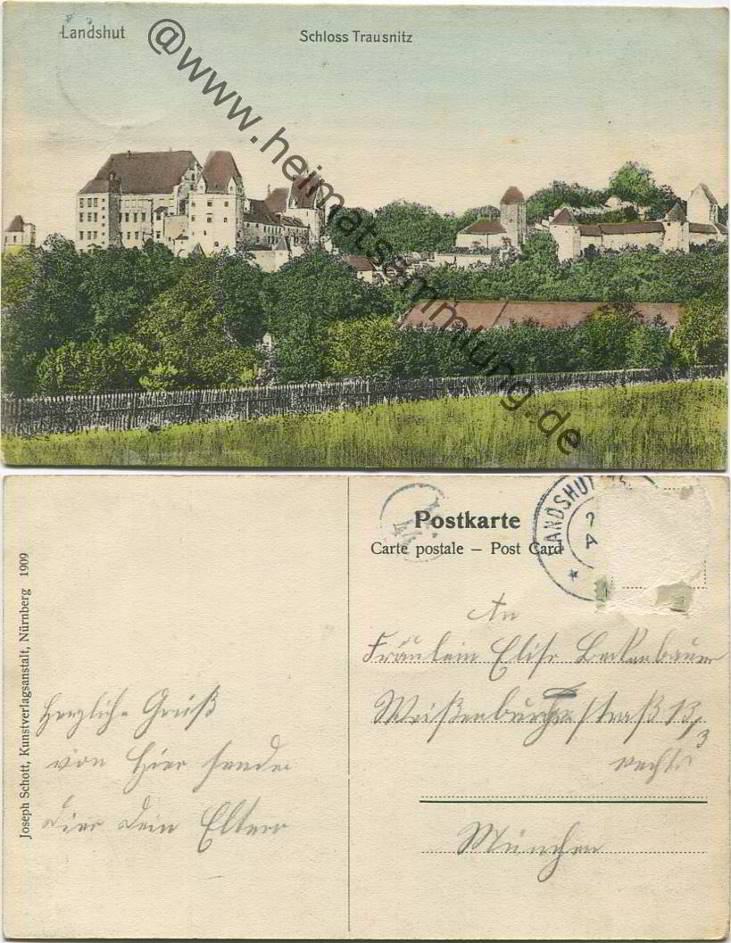 Landshut
Schloss Trausnitz
@www.heimatsammlung.de
Postkarte
Carte postale – Post Card
LANDSHUT
Joseph Schott, Kunstverlagsanstalt, Nürnberg 1909
An
Fräulein Elise Beckenbauer
Weißenburgerstraß 13/3
rechts
München
Herzliche Grüß
von Hier sende
dier dein Eltern